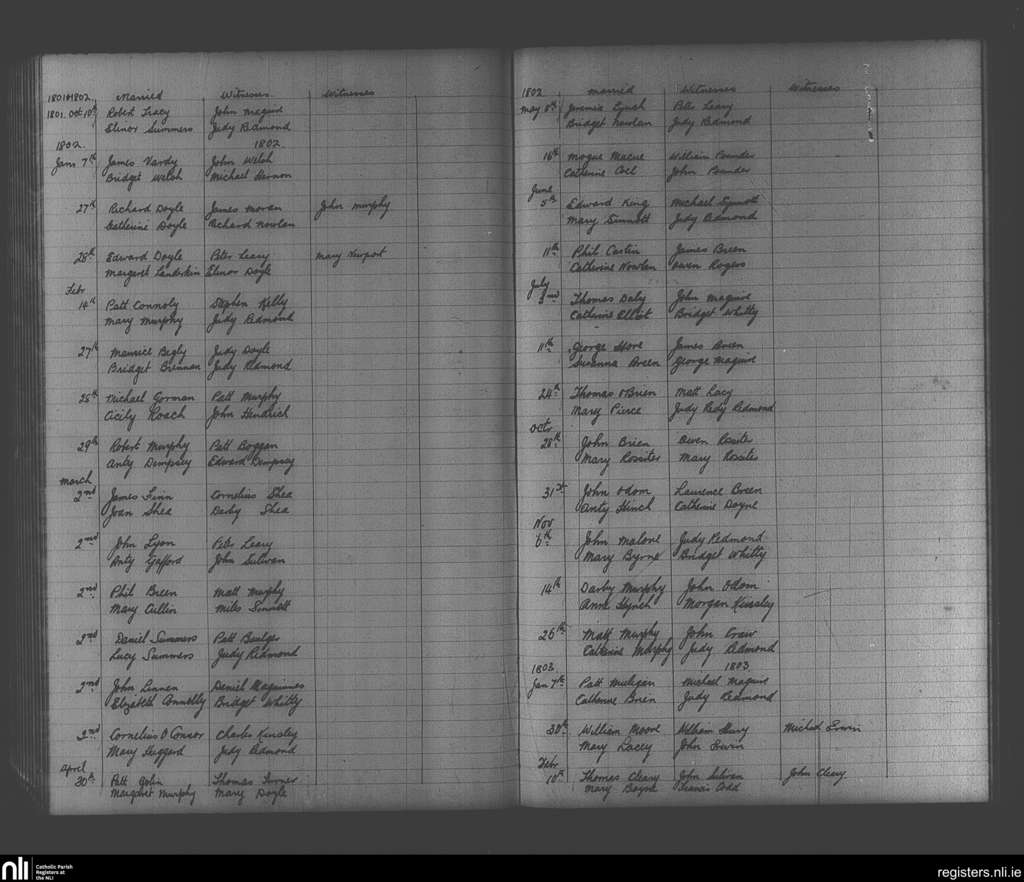 1801+1802 Married Witnesses Witnesses
1801. Oct 10th Robert Tracy John Maguire
Elenor Summers Judy Redmond
1802. 1802.
Jany 7th James Vardy John Welsh
Bridget Welsh Michael Hernon
27th Richard Doyle James Moran John Murphy
Catherine Doyle Richard Nowlan
28th Edward Doyle Peter Leary Mary Newport
Margaret Landerkin Elenor Doyle
Febr
14th Patt Connoly Stephen Kelly
Mary Murphy Judy Redmond
27th Maurice Begly Judy Doyle
Bridget Brennan Judy Redmond
25th Michael Gorman Patt Murphy
Cicily Roach John Hendrich
29th Robert Murphy Patt Boggan
Anty Dempsey Edward Dempsey
March
2nd James Finn Cornelius Shea
Joan Shea Darby Shea
2nd John Lyon Peter Leary
Anty Gafford John Sulivan
2nd Phil Breen Matt Murphy
Mary Cullin Miles Sinnott
2nd Daniel Summers Patt
Lucy Summers Judy Redmond
2nd John Lennen Daniel Maguinnes
Elizabeth Connolly Bridget Whitty
2nd Cornelius O'Connor Charles Kinsley
Mary Haggard Judy Redmond
April
30th Patt Thomas Turner
Margaret Murphy Mary Doyle
1802 Married Witnesses Witnesses
May 8th Lynch Peter Leary
Bridget Nowlan Judy Redmond
16th Mogue Macue William Pounder
Catherine John Pounder
June
5th Edward King Michael Synnott
Mary Sinnott Judy Redmond
11th Phil Costin James Breen
Catherine Nowlan Owen Rogers
July
3rd Thomas Daly John Maguire
Catherine Elliot Bridget Whitty
11th George Hore James Breen
Susanna Breen George Maguire
24th Thomas O'Brien Matt Lacy
Mary Pierce Judy Redy Redmond
Octr
28th John Brien Owen Rositer
Mary Rossiter Mary Rositer
31st John Odom Laurence Breen
Anty Hinch Catherine Doyne
Nov
6th John Malone Judy Redmond
Mary Byrne Bridget Whitty
14th Darby Murphy John Odom
Anne Hynch Morgan Kinsley
26th Matt Murphy John
Catherine Murphy Judy Redmond
1803 1803
Jan 7th Patt Muligan Michael Maguire
Catherine Brien Judy Redmond
30th William Moore William Michael Erwin
Mary Lacey John Irwin
Febr
10th Thomas Cleary John Sulivan John Cleary
Mary Bayne Francis Codd
nli
Catholic Parish
Registers at
the NLI
registers.nli.ie